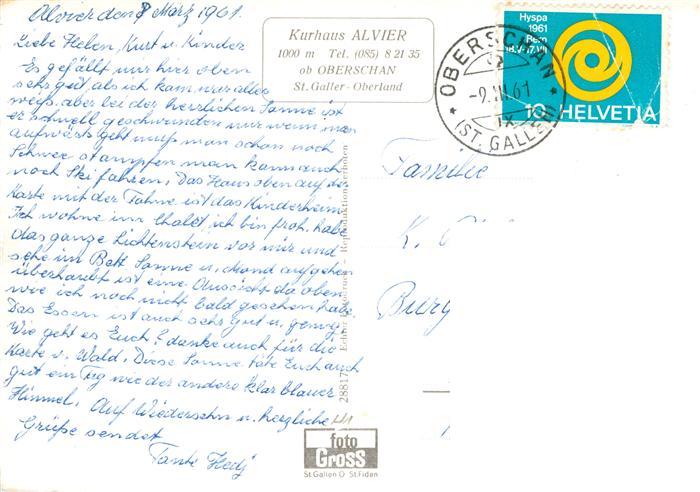 Alvier den 8 März 1961.
Liebe Helen, Kurt u. Kinder
Es gefällt mir hier oben
sehr gut, als ich kam war alles
weiss, aber bei der herrlichen Sonne ist
er schnell geschwunden nur wenn man
aufwärts geht muss man schon noch
Schnee stampfen man kann auch
noch Skifahren. Das Haus oben auf der
Karte mit der Fahne ist das Kinderheim
Ich wohne im Chalet, ich bin froh, habe
das ganze Lichtenstein vor mir und
sehe im Bett Sonne u. Mond aufgehen
überhaubt ist eine Aussicht da oben
wie ich noch nicht bald gesehen habe.
Das Essen ist auch sehr gut u. genug.
Wie geht es Euch? danke auch für die
Karte v. Wald. Diese Sonne täte Euch auch
gut ein Tag wie der andere klar blauer
Himmel. Auf Wiedersehn u. herzliche
Grüsse sendet
Tante Hedj
Kurhaus ALVIER
1000 m Tel. (085) 8 21 35
ob OBERSCHAN
St. Galler-Oberland
Reproduktion verboten
28817
foto
Gross
St. Gallen O St. Fiden
OBERSCHAN
-9.III.61
IX
(ST. GALLEN)
Hyspa
1961
Bern
18.V-17.VII
10 HELVETIA
Familie
K.